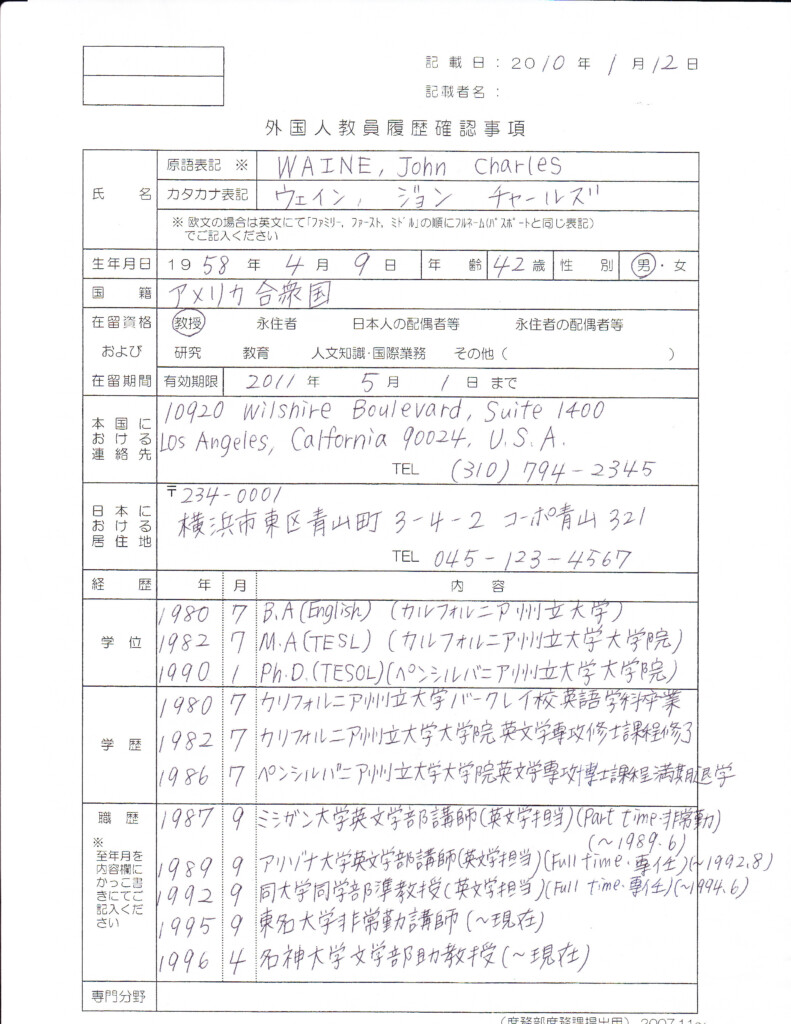 記載日：2010年1月12日
記載者名：
外国人教員履歴確認事項
氏名 原語表記 ※ WAINE, John Charles
カタカナ表記 ウェイン, ジョン チャールズ
※ 欧文の場合は英文にて「ファミリー, ファースト, ミドル」の順にフルネーム(パスポートと同じ表記)
でご記入ください
生年月日 1958年4月9日 年齢 42歳 性別 男・女
国籍 アメリカ合衆国
在留資格 教授 永住者 日本人の配偶者等 永住者の配偶者等
および 研究 教育 人文知識・国際業務 その他（ ）
在留期間 有効期限 2011年5月1日まで
本国に
おける
連絡先
10920 Wilshire Boulevard, Suite 1400
Los Angeles, Calfornia 90024, U.S.A.
TEL (310) 794-2345
日本に
おける
居住地
〒234-0001
横浜市東区青山町 3-4-2 コーポ青山 321
TEL 045-123-4567
経歴 年 月 内容
学位
1980 7 B.A (English) (カルフォルニア州立大学)
1982 7 M.A (TESL) (カルフォルニア州立大学大学院)
1990 1 Ph.D. (TESOL) (ペンシルバニア州立大学大学院)
学歴
1980 7 カリフォルニア州立大学バークレイ校英語学科卒業
1982 7 カリフォルニア州立大学大学院英文学専攻修士課程修了
1986 7 ペンシルバニア州立大学大学院英文学専攻博士課程満期退学
職歴
※
至年月を
内容欄に
かっこ書
きにてご
記入くだ
さい
1987 9 ミシガン大学英文学部講師(英文学担当)(Part time・非常勤)
(~1989.6)
1989 9 アリゾナ大学英文学部講師(英文学担当)(Full time・専任)(~1992.8)
1992 9 同大学同学部準教授(英文学担当)(Full time・専任)(~1994.6)
1995 9 東名大学非常勤講師(~現在)
1996 4 名神大学文学部助教授(~現在)
専門分野
(庶務部庶務課提出用) 2007.11